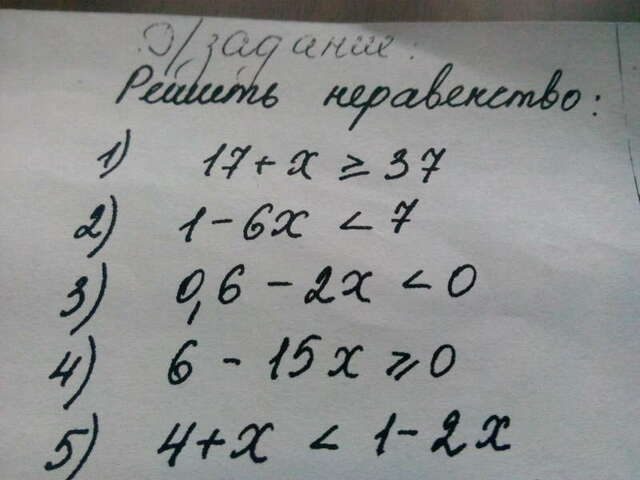 Д/задание:
Решить неравенство:
1) 17 + x ≥ 37
2) 1 - 6x < 7
3) 0,6 - 2x < 0
4) 6 - 15x ⩾ 0
5) 4 + x < 1 - 2x